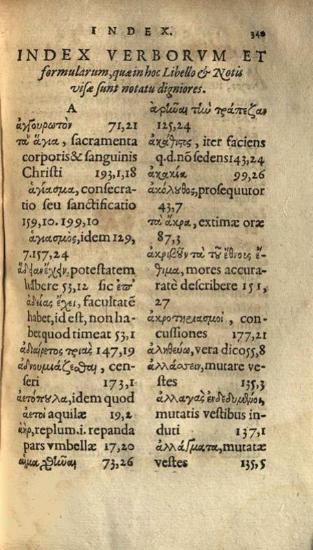 INDEX.
INDEX VERBORVM ET
formularum, quæ in hoc Libello & Notis
visæ sunt notatu digniores.
A
ἀγουρωτὸν 71,21
τὰ ἅγια, sacramenta
corporis & sanguinis
Christi 193,1,18
ἁγίασμα, consecra-
tio seu sanctificatio
159,10. 199,10
ἁγιασμὸς, idem 129,
7.157,24
potestatem
habere 53,12 sic ἐπ'
ἀδείας ἔχει, facultatẽ
habet, id est, non ha-
bet quod timeat 53,1
ἀδιαίρετος τριὰς 147,19
ἀδνουμιάζεσθαι, cen-
seri 173,1
ἀετόπουλα, idem quod
ἀετοὶ aquilæ 19,2
ἀὴρ, replum. i. repanda
pars vmbellæ 17,20
73,26
τὴν τράπεζαν
125,24
iter faciens
q.d. nõ sedens 143,24
ἀκακία 99,26
ἀκόλουθος, prosequutor
43,7
τὰ ἄκρα, extimæ oræ
87,3
ἀκριβοῦν τὰ τοῦ ἔθνους ἔ-
θιμα, mores accura-
ratè describere 151,
27
ἀκρωτηριασμοὶ, con-
cussiones 177,21
ἀληθεύω, vera dico 55,8
ἀλλάσσειν, mutare ve-
stes 135,3
ἀλλαγὰς ἐνδεδυμένοι,
mutatis vestibus in-
duti 137,1
ἀλλάξματα, mutatæ
vestes 135,5